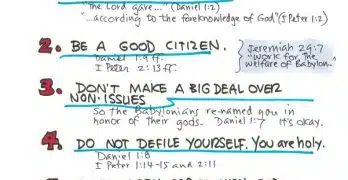 the Lord gave..." (Daniel 1:2)
"...according to the foreknowledge of God" (I Peter 1:2)
2. BE A GOOD CITIZEN.
Daniel 1:9 ff.
I Peter 2:13 ff.
Jeremiah 29:7
"Work for the
welfare of Babylon."
3. DON'T MAKE A BIG DEAL OVER
NON-ISSUES
So the Babylonians re-named you in
honor of their gods. Daniel 1:7 It's okay.
4. DO NOT DEFILE YOURSELF. You are holy.
Daniel 1:8
I Peter 1:14-15 and 2:11